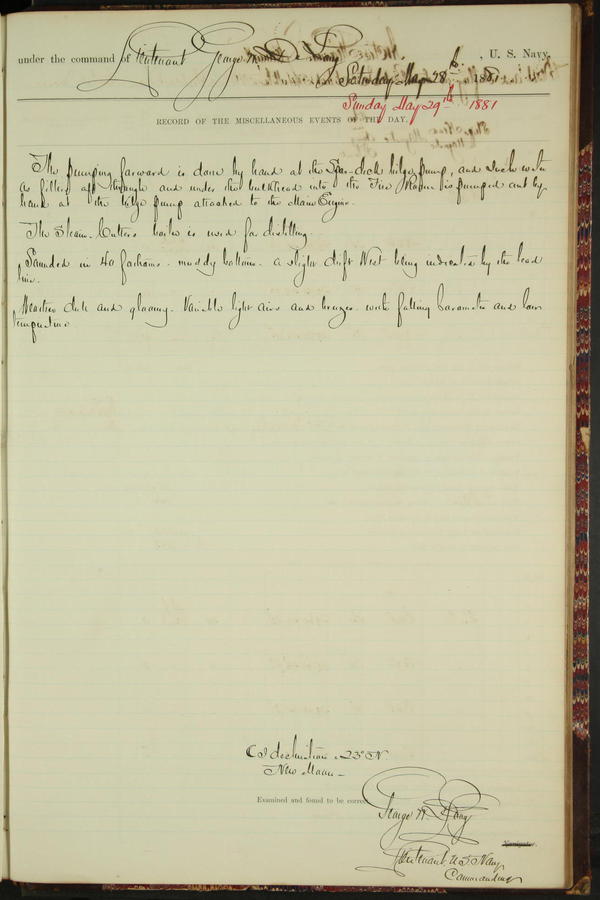 under the command of Lieutenant George W. De Long, U. S. Navy,
Saturday May 28th, 1881
Sunday May 29th 1881
RECORD OF THE MISCELLANEOUS EVENTS OF THE DAY.
The pumping forward is done by hand at the Spar-deck bilge pump, and such water
as filters aft through and under the bulkhead into the Fire Room is pumped out by
hand at the bilge pump attached to the Main Engine.
The Steam-Cutters boiler is used for distilling.
Sounded in 40 fathoms - muddy bottom. a slight drift West being indicated by the lead
line.
Weather dull and gloomy. Variable light airs and breezes - with falling barometer and low
temperature
declination 23° N
New Moon -
Examined and found to be correct
George W. De Long
Navigator.
Lieutenant U.S. Navy
Commanding